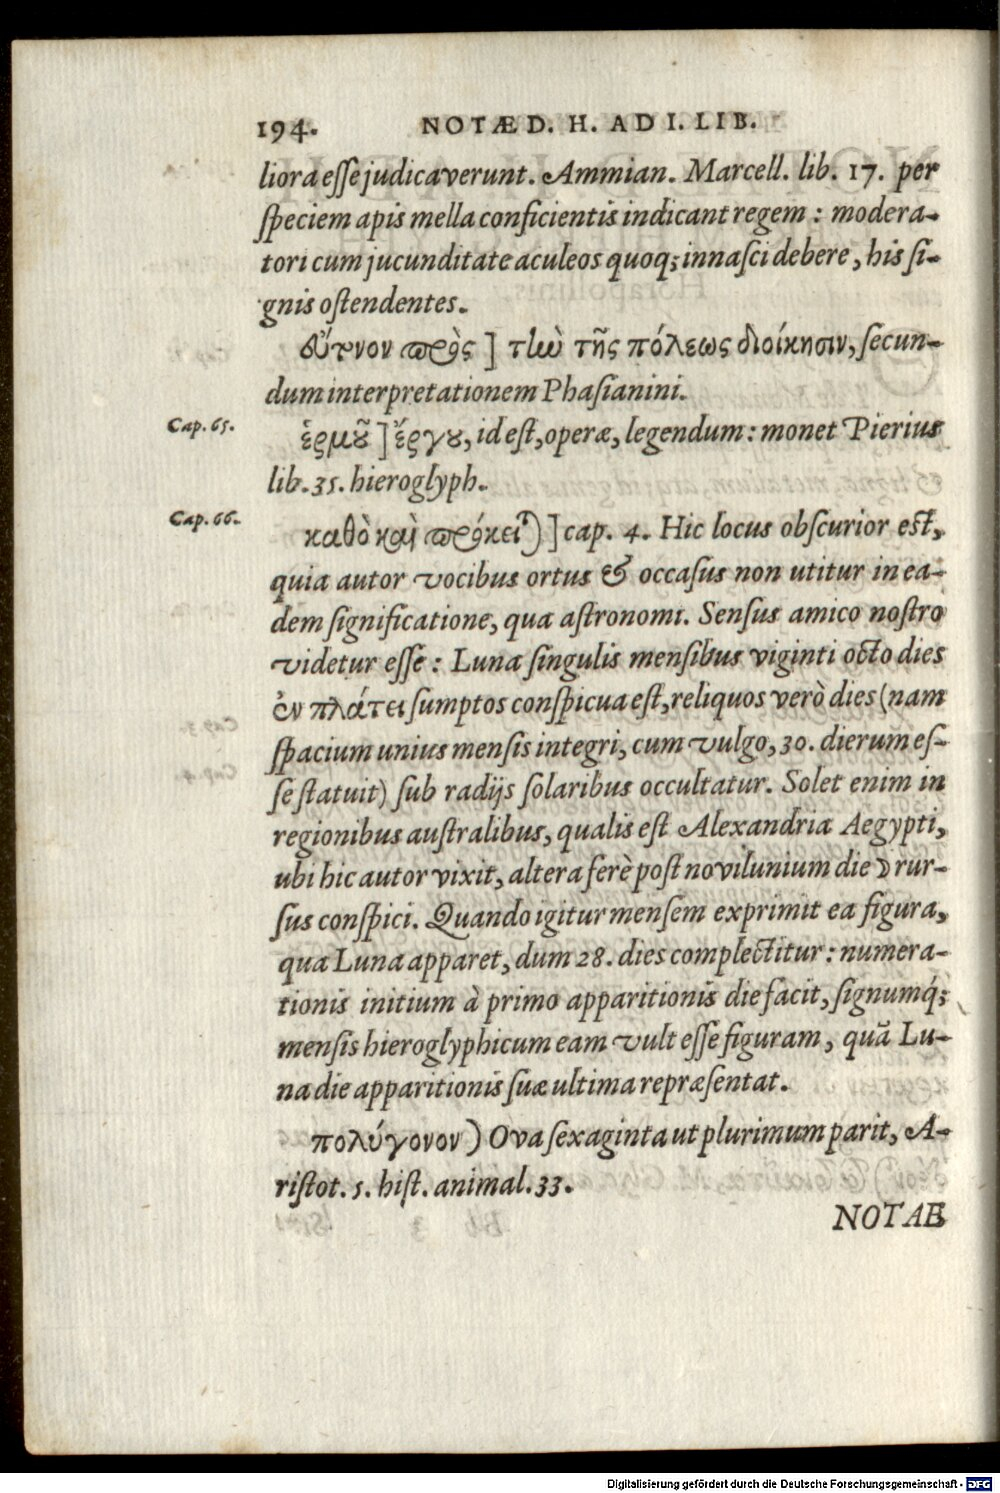 194. NOTÆ D. H. AD I. LIB.
liora esse judicaverunt. Ammian. Marcell. lib. 17. per
speciem apis mella conficientis indicant regem : modera-
tori cum jucunditate aculeos quoq; innasci debere, his si-
gnis ostendentes.
εὔτονον πρὸς ] τὴν τῆς πόλεως διοίκησιν, secun-
dum interpretationem Phasianini.
Cap. 65. ἑρμοῦ ] ἔργου, id est, operæ, legendum : monet Pierius
lib. 35. hieroglyph.
Cap. 66. καθὸ καὶ πρόκειται ) ] cap. 4. Hic locus obscurior est,
quia autor vocibus ortus & occasus non utitur in ea-
dem significatione, qua astronomi. Sensus amico nostro
videtur esse : Luna singulis mensibus viginti octo dies
ἐν πλάτει sumptos conspicua est, reliquos verò dies (nam
spacium unius mensis integri, cum vulgo, 30. dierum es-
se statuit) sub radijs solaribus occultatur. Solet enim in
regionibus australibus, qualis est Alexandria Aegypti,
ubi hic autor vixit, altera ferè post novilunium die ☽ rur-
sus conspici. Quando igitur mensem exprimit ea figura,
qua Luna apparet, dum 28. dies complectitur : numera-
tionis initium à primo apparitionis die facit, signumq́;
mensis hieroglyphicum eam vult esse figuram, quã Lu-
na die apparitionis suæ ultima repræsentat.
πολύγονον ) Ova sexaginta ut plurimum parit, A-
ristot. 5. hist. animal. 33.
NOTAE
Digitalisierung gefördert durch die Deutsche Forschungsgemeinschaft - DFG